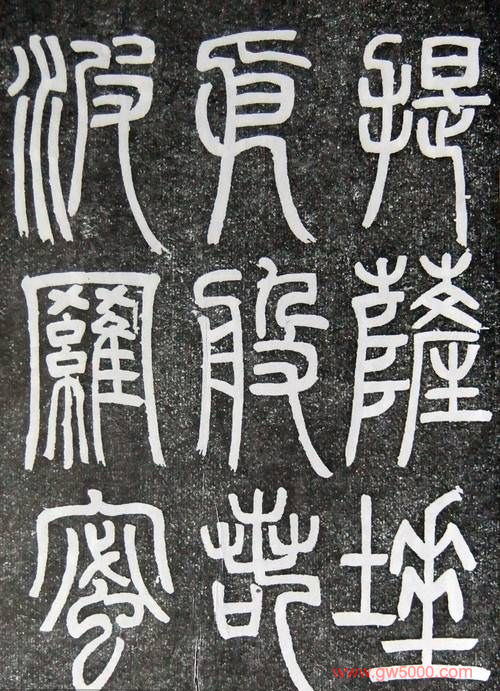 提薩埵
依般若
波羅蜜
www.gw5000.com